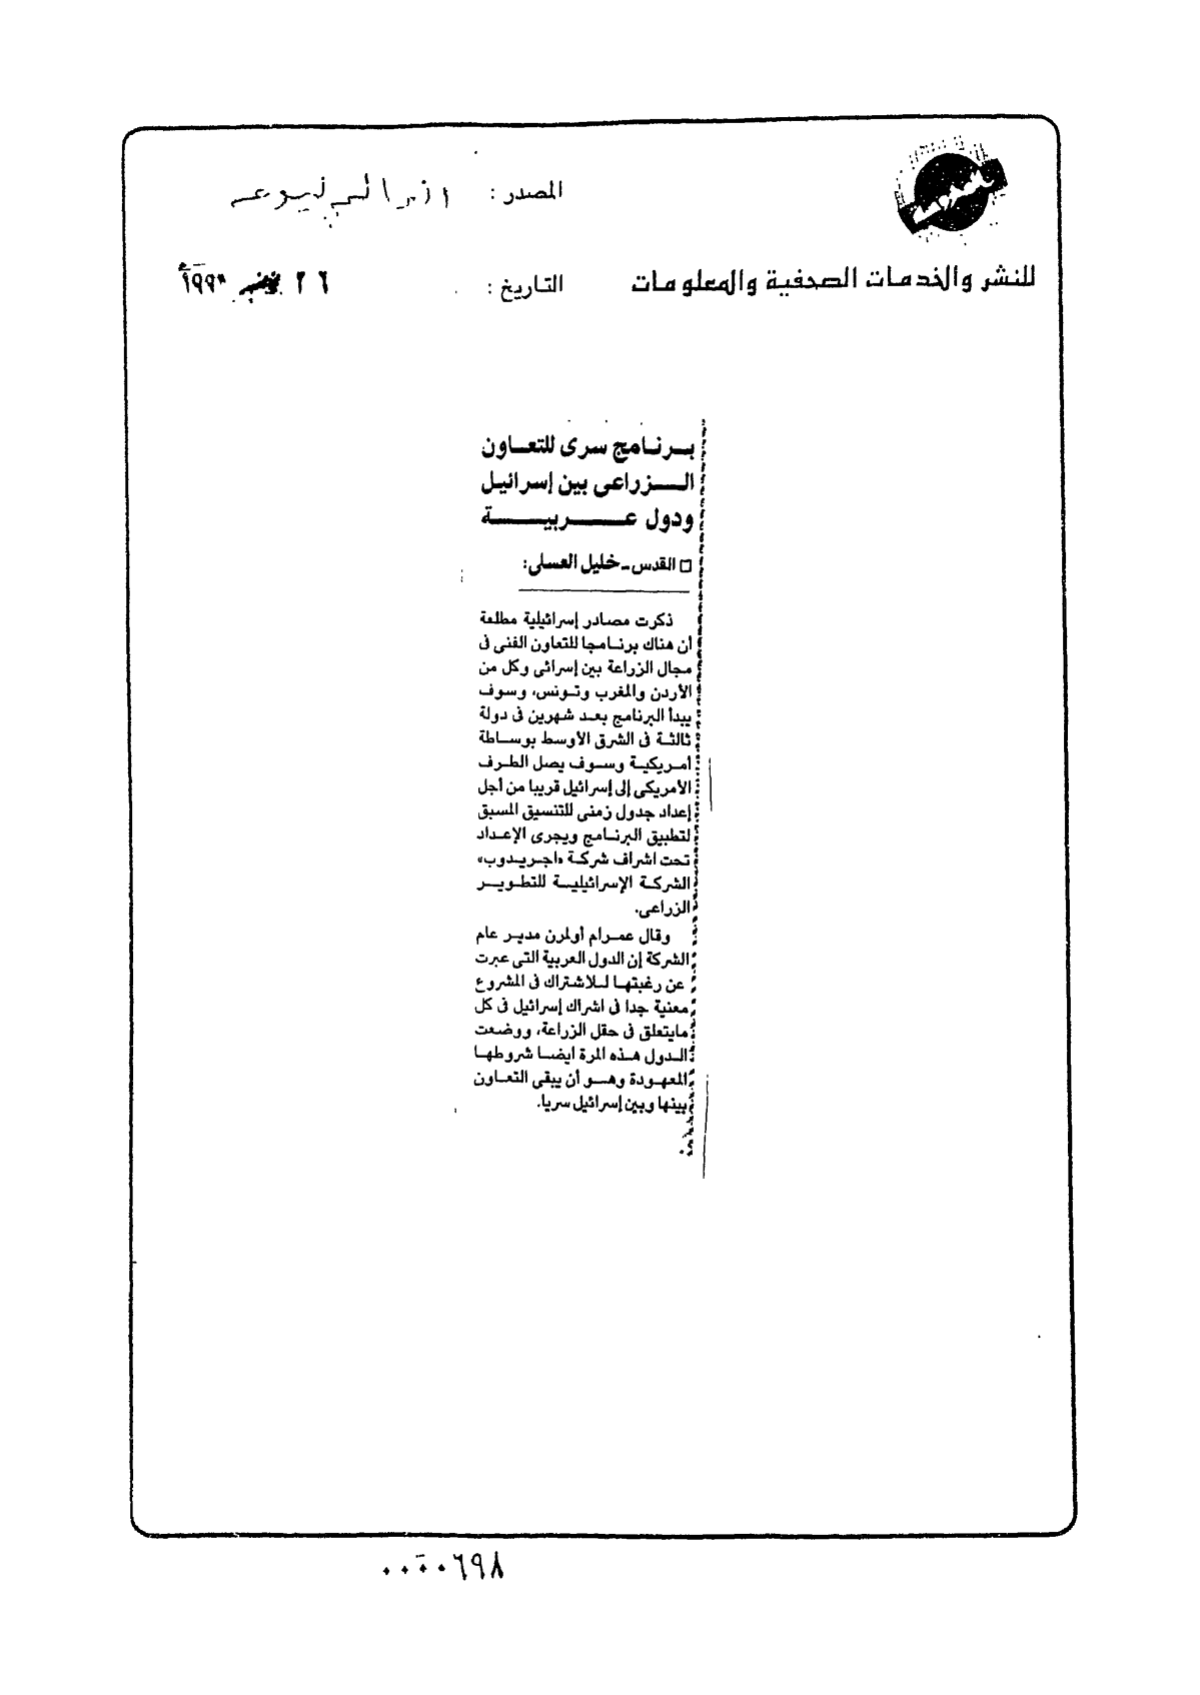 المصدر :
للنشر والخدمات الصحفية والمعلومات
التاريخ : ٢٦
برنامج سرى للتعاون
الزراعى بين إسرائيل
ودول عربية
القدس - خليل العسلى:
ذكرت مصادر إسرائيلية مطلعة
أن هناك برنامجا للتعاون الفنى فى
مجال الزراعة بين إسرائى وكل من
الأردن والمغرب وتونس، وسوف
يبدأ البرنامج بعد شهرين فى دولة
ثالثة فى الشرق الأوسط بوساطة
أمريكية وسوف يصل الطرف
الأمريكى إلى إسرائيل قريبا من أجل
إعداد جدول زمنى للتنسيق المسبق
لتطبيق البرنامج ويجرى الإعداد
تحت اشراف شركة «اجريدوب»
الشركة الإسرائيلية للتطوير
الزراعى.
وقال عمرام أولمرن مدير عام
الشركة إن الدول العربية التى عبرت
عن رغبتها للاشتراك فى المشروع
معنية جدا فى اشراك إسرائيل فى كل
مايتعلق فى حقل الزراعة، ووضعت
الدول هذه المرة ايضا شروطها
المعهودة وهو أن يبقى التعاون
بينها وبين إسرائيل سريا.
٠٠٠٠٦٩٨